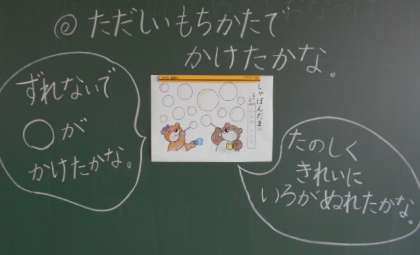 ◎ ただしいもちかたで
かけたかな。
ずれないで
○が
かけたかな。
しゃぼんだま
たのしく
きれいに
いろがぬれたかな。